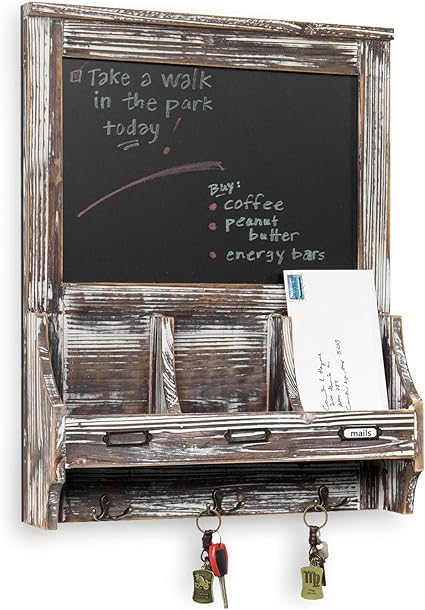 Take a walk
in the park
today!
Buy:
• coffee
• peanut
butter
• energy bars
mails